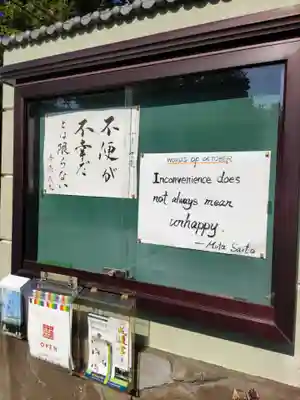 不便が
不幸だ
とは限らない
WORDS OF OCTOBER
Inconvenience does
not always mean
unhappy.
— Muta Saito
OPEN